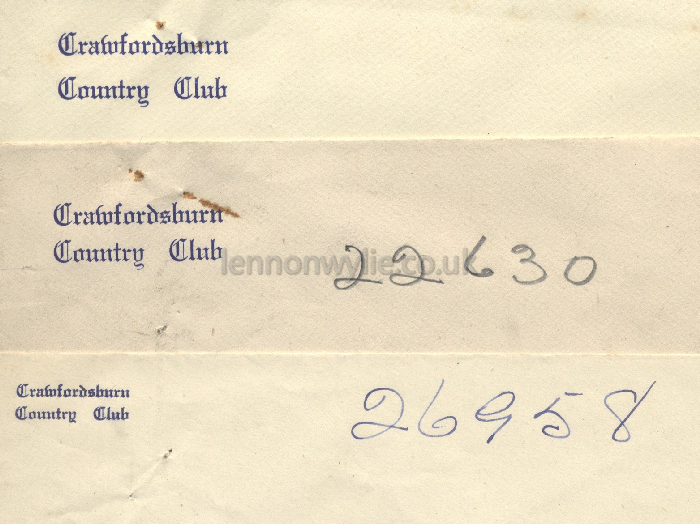 Crawfordsburn
Country Club
Crawfordsburn
Country Club
lennonwylie.co.uk
22630
Crawfordsburn
Country Club
26958